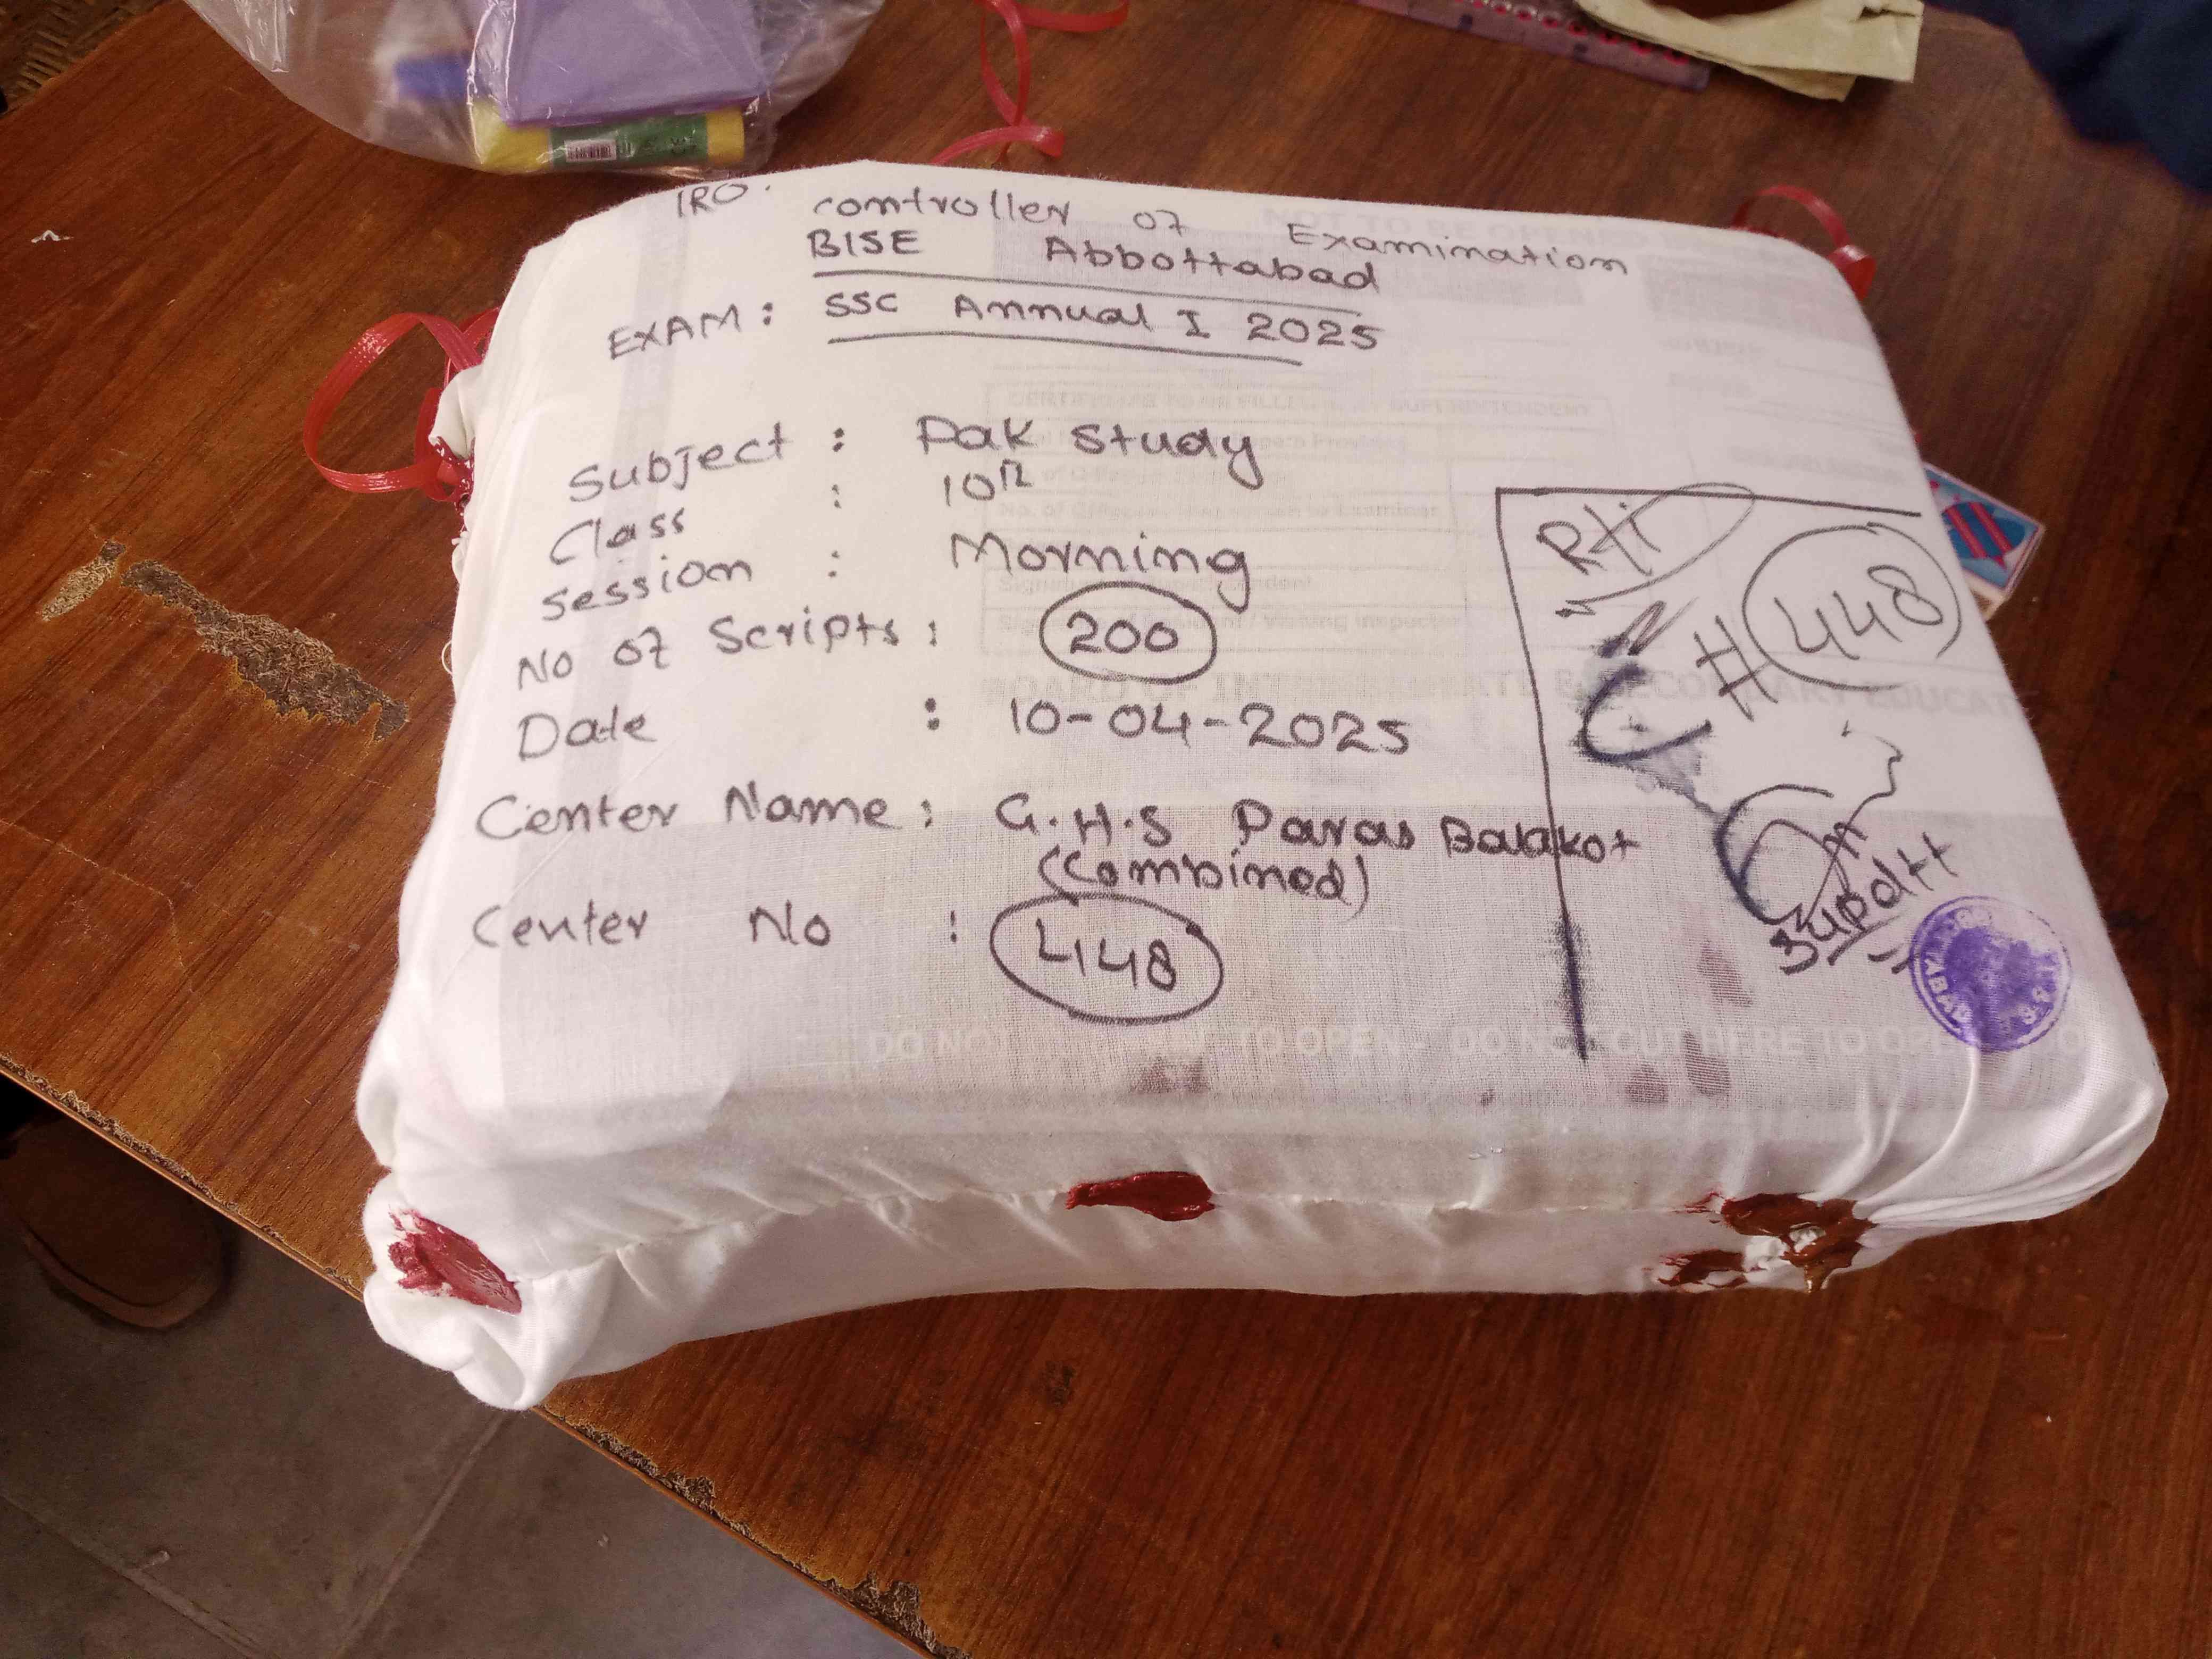 IRO.
controller of Examination
BISE Abbottabad
EXAM: SSC Annual I 2025
Subject : Pak Study
Class : 10th
Session : Morning
No of Scripts : 200
Date : 10-04-2025
Center Name : G.H.S Paras Balakot
(Combined)
Center No : 448
# 448
Supdtt
NOT TO BE OPENED
CERTIFICATE TO BE FILLED SUPERINTENDENT
BOARD OF INTERMEDIATE & SECONDARY EDUCAT
DO NOT TO OPEN DO NOT CUT HERE TO OP